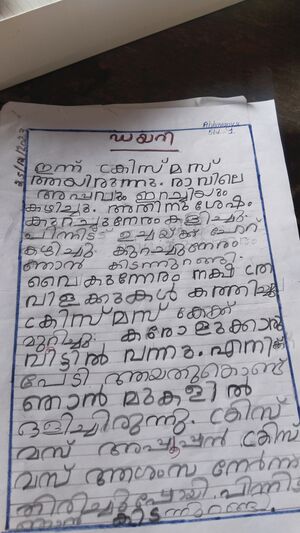 Abhinavya
Std 1
25/12/2023
ഡയറി
ഇന്ന് ക്രിസ്മസ്
ആയിരുന്നു. രാവിലെ
അപ്പവും ഇറച്ചിയും
കഴിച്ചു. അതിനുശേഷം
കുറച്ചുനേരം കളിച്ചു.
പിന്നീട് ഉച്ചയ്ക്ക് ചോറ്
കഴിച്ചു. കുറച്ചുനേരം
ഞാൻ കിടന്നുറങ്ങി.
വൈകുന്നേരം നക്ഷത്ര
വിളക്കുകൾ കത്തിച്ചു
ക്രിസ്മസ് കേക്ക്
മുറിച്ചു. കരോളുക്കാർ
വീട്ടിൽ വന്നു. എനിക്ക്
പേടി ആയതുകൊണ്ട്
ഞാൻ മുകളിൽ
ഒളിച്ചിരുന്നു. ക്രിസ്
മസ് അപ്പൂപ്പൻ ക്രിസ്
മസ് ആശംസ നേർന്ന്
തിരിച്ചുപോയി. പിന്നീട്
ഞാൻ കിടന്നുറങ്ങി.